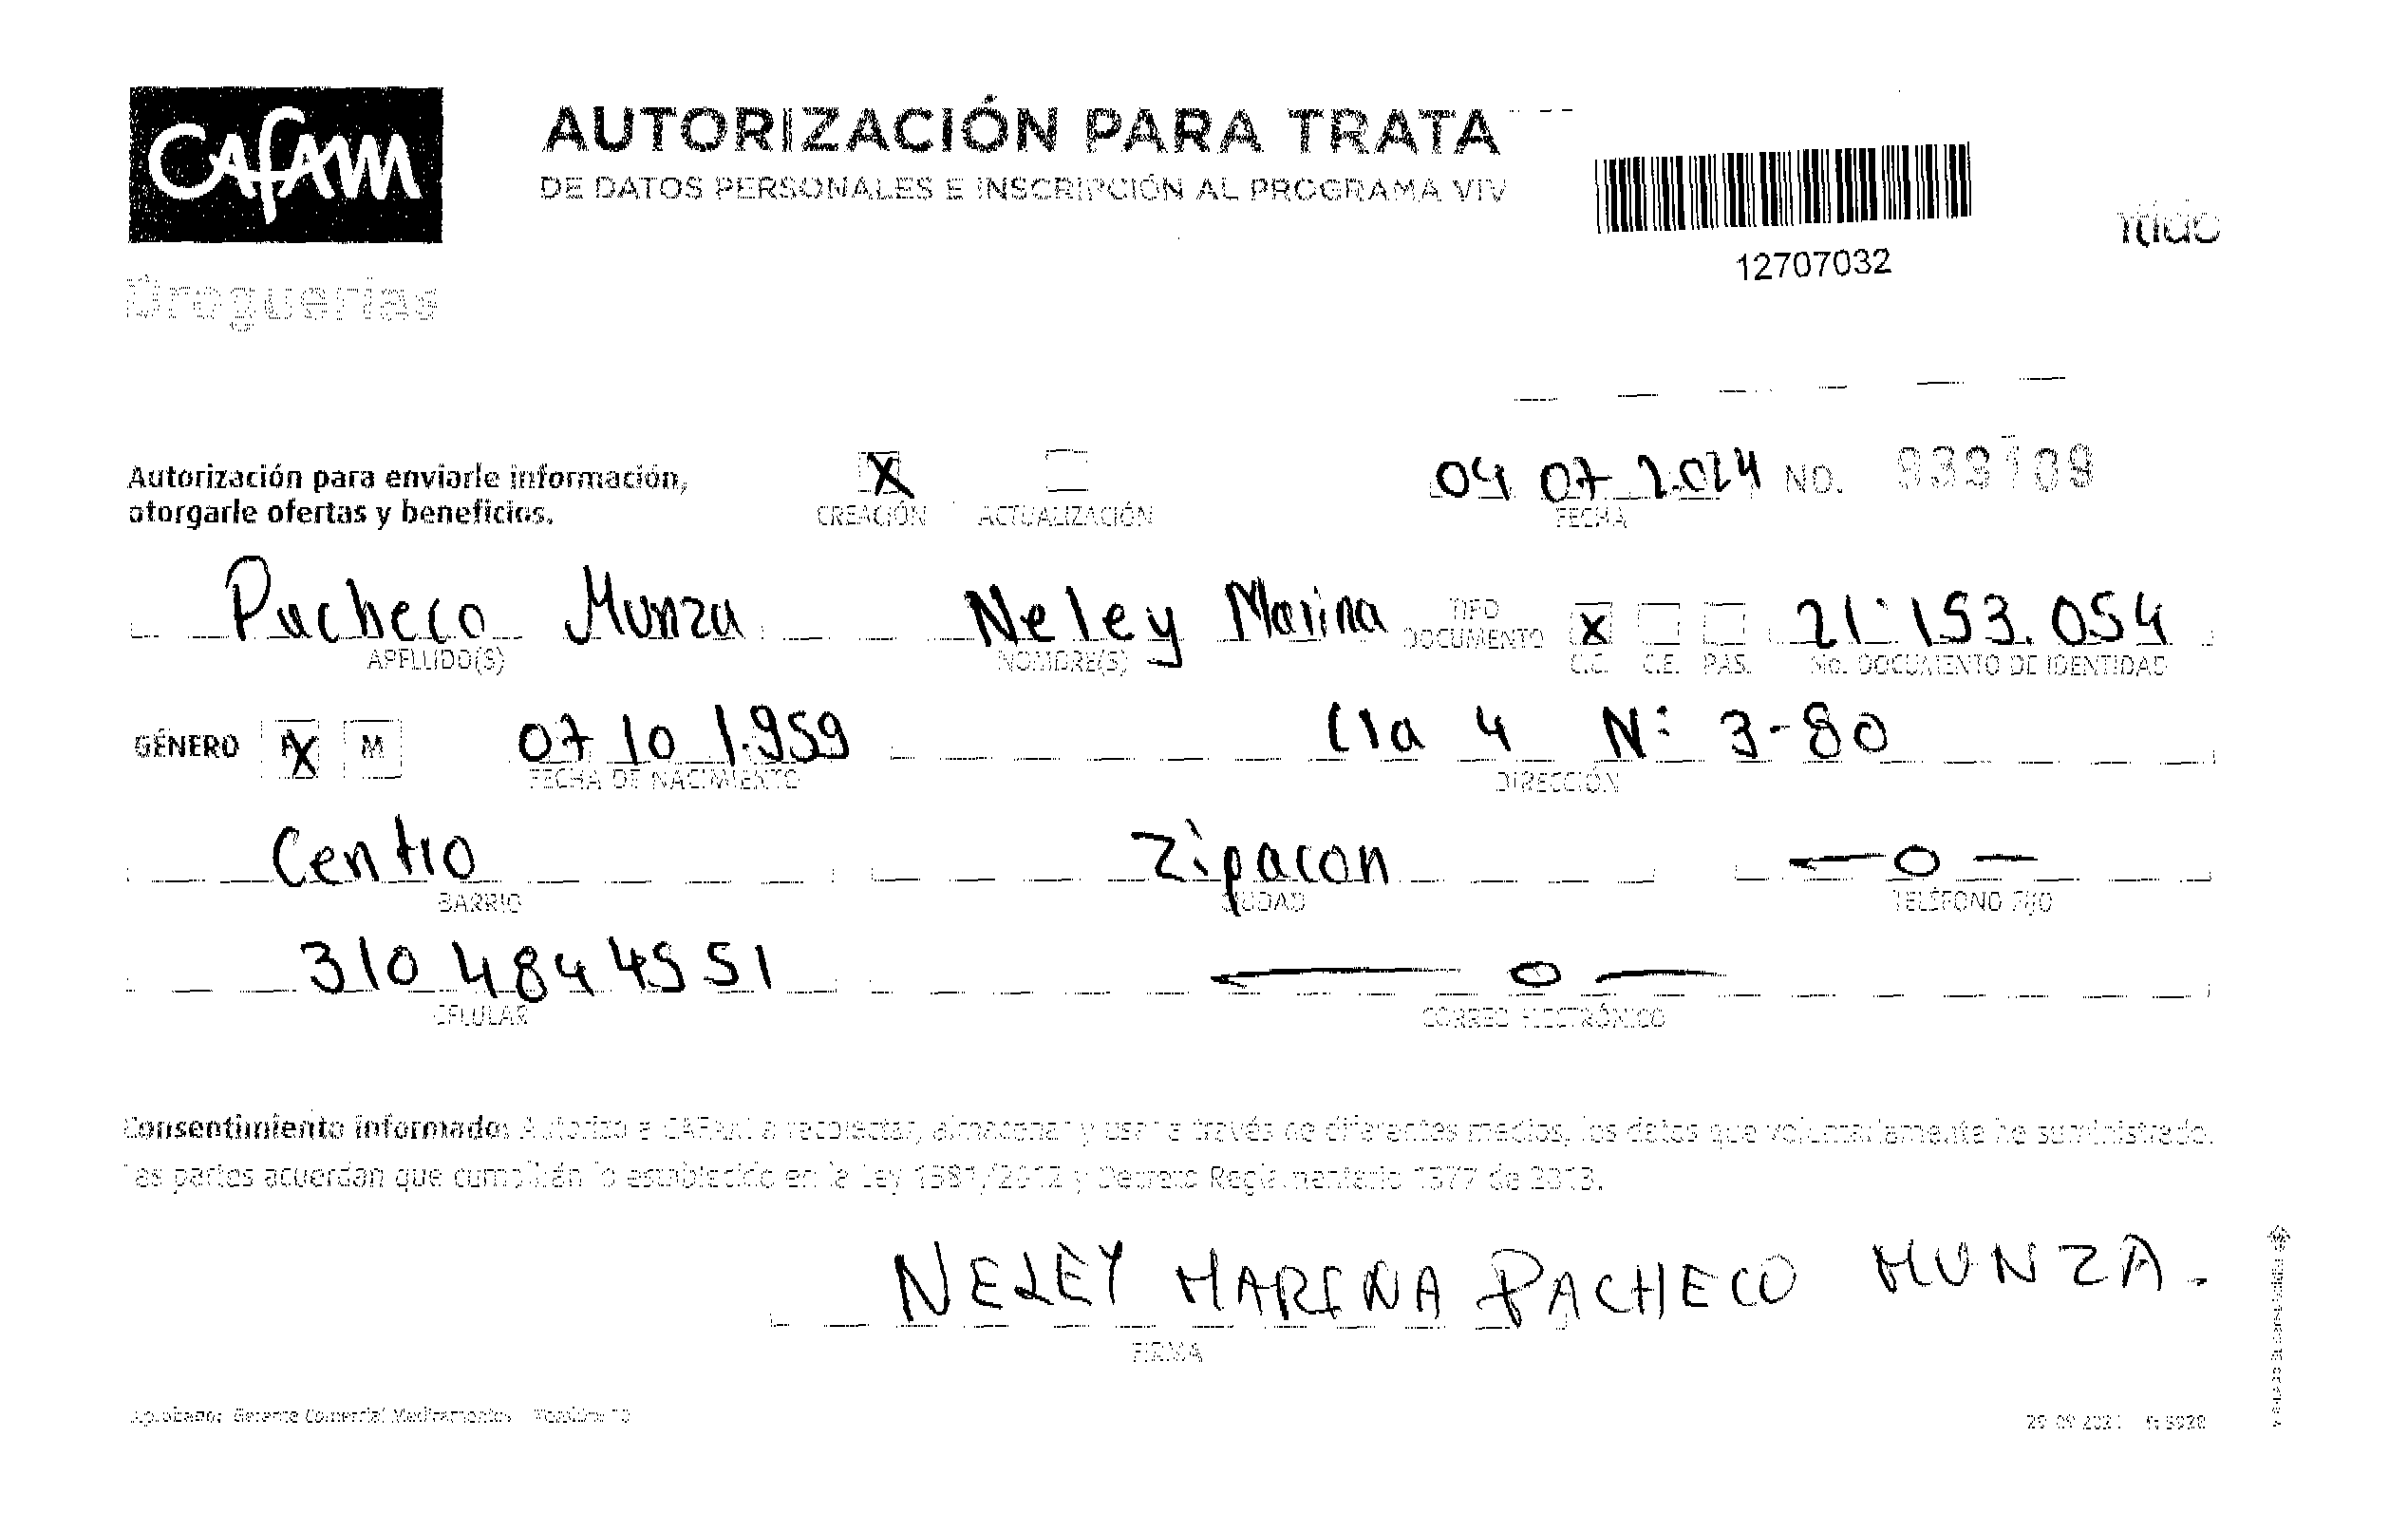 Cafam
AUTORIZACIÓN PARA TRATA
DE DATOS PERSONALES E INSCRIPCIÓN AL PROGRAMA VIV
12707032
Droguerías
Autorización para enviarle información,
otorgarle ofertas y beneficios.
X
CREACIÓN
ACTUALIZACIÓN
04 07 2024
FECHA
NO. 939109
Pacheco Munza
APELLIDO(S)
Neley Marina
NOMBRE(S)
TIPO
DOCUMENTO
X
C.C. C.E. PAS.
21.153.054
No. DOCUMENTO DE IDENTIDAD
GÉNERO F X M
07 10 1.959
FECHA DE NACIMIENTO
Cla 4 N: 3-80
DIRECCIÓN
Centro
BARRIO
Zipacon
CIUDAD
—0—
TELÉFONO FIJO
310 4844551
CELULAR
—0—
CORREO ELECTRÓNICO
Consentimiento informado: Autorizo a CAFAM a recolectar, almacenar y usar a través de diferentes medios, los datos que voluntariamente he suministrado.
Las partes acuerdan que cumplirán lo establecido en la Ley 1581/2012 y Decreto Reglamentario 1377 de 2013.
NELEY MARINA PACHECO MUNZA.
FIRMA
Aprobado: Gerente Comercial Medicamentos Versión: 10